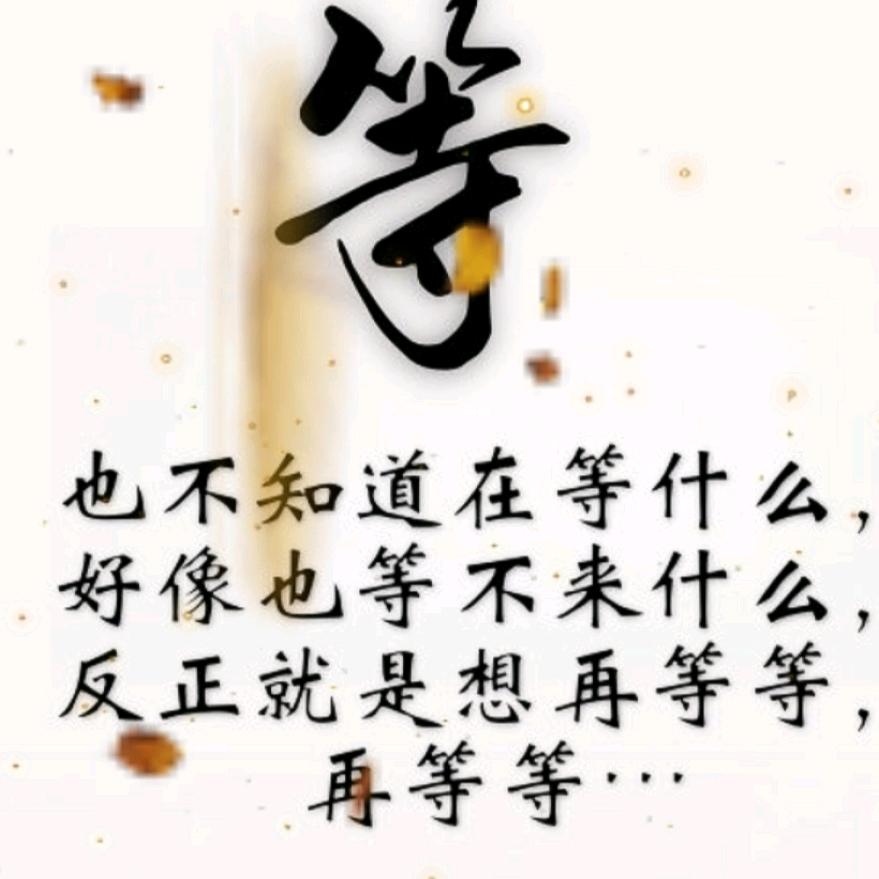 等
也不知道在等什么,
好像也等不来什么,
反正就是想再等等,
再等等…